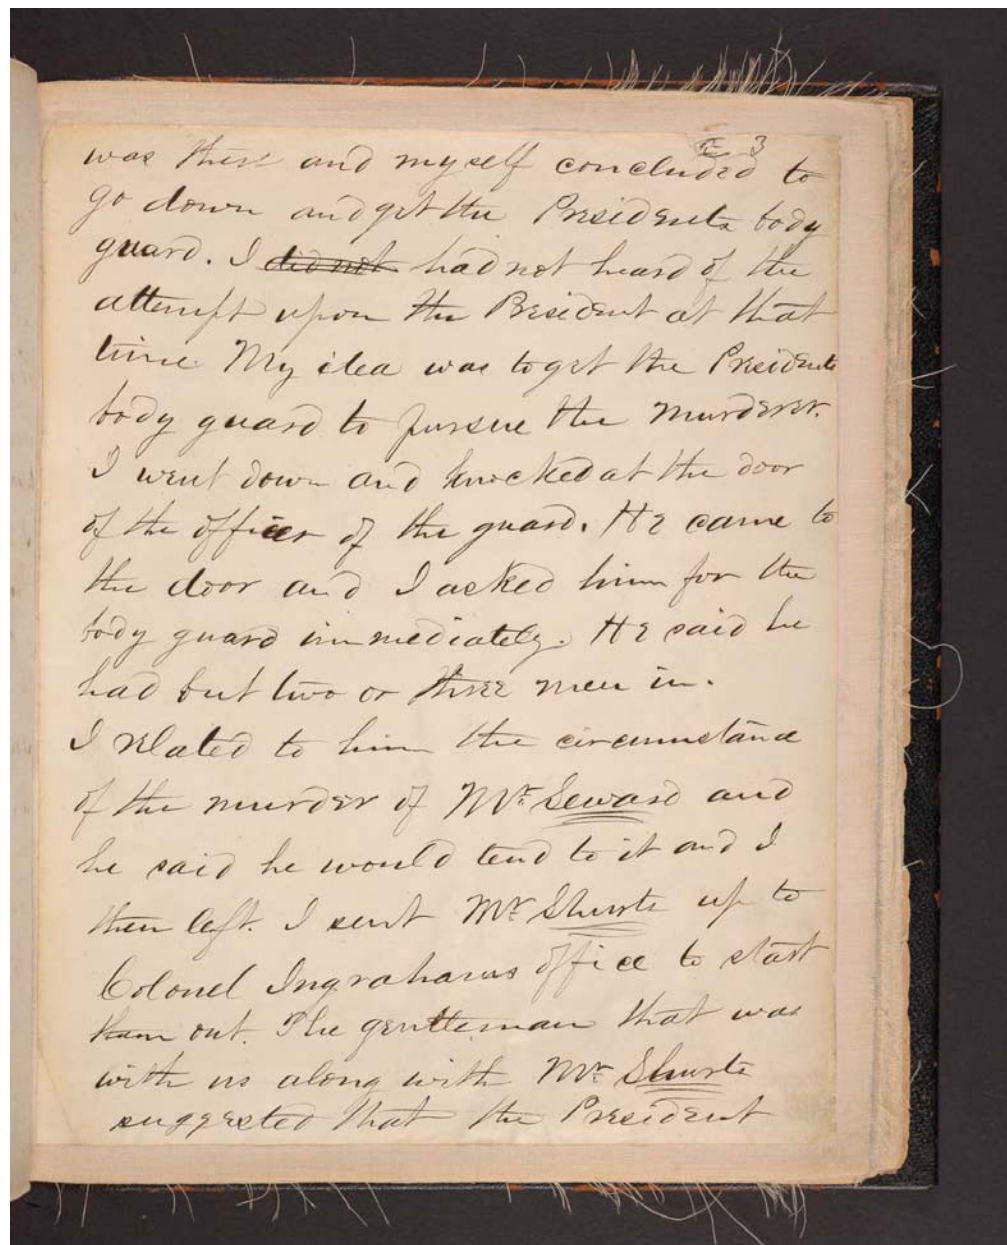 3
was there and myself concluded to
go down and get the Presidents body
guard. I did not had not heard of the
attempt upon the President at that
time. My idea was to get the Presidents
body guard to pursue the murderer.
I went down and knocked at the door
of the officer of the guard. He came to
the door and I asked him for the
body guard immediately. He said he
had but two or three men in.
I related to him the circumstance
of the murder of Mr. Seward and
he said he would tend to it and I
then left. I sent Mr. Shurts up to
Colonel Ingrahams office to start
them out. The gentleman that was
with us along with Mr. Shurts
suggested that the President